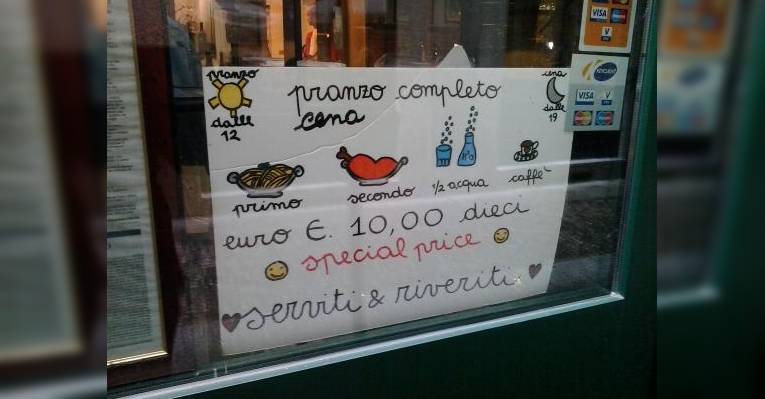 pranzo
dalle
12
pranzo completo
cena
cena
dalle
19
primo
secondo
1/2 acqua
caffè
euro €. 10,00 dieci
special price
serviti & riveriti
VISA
V
VISA
V